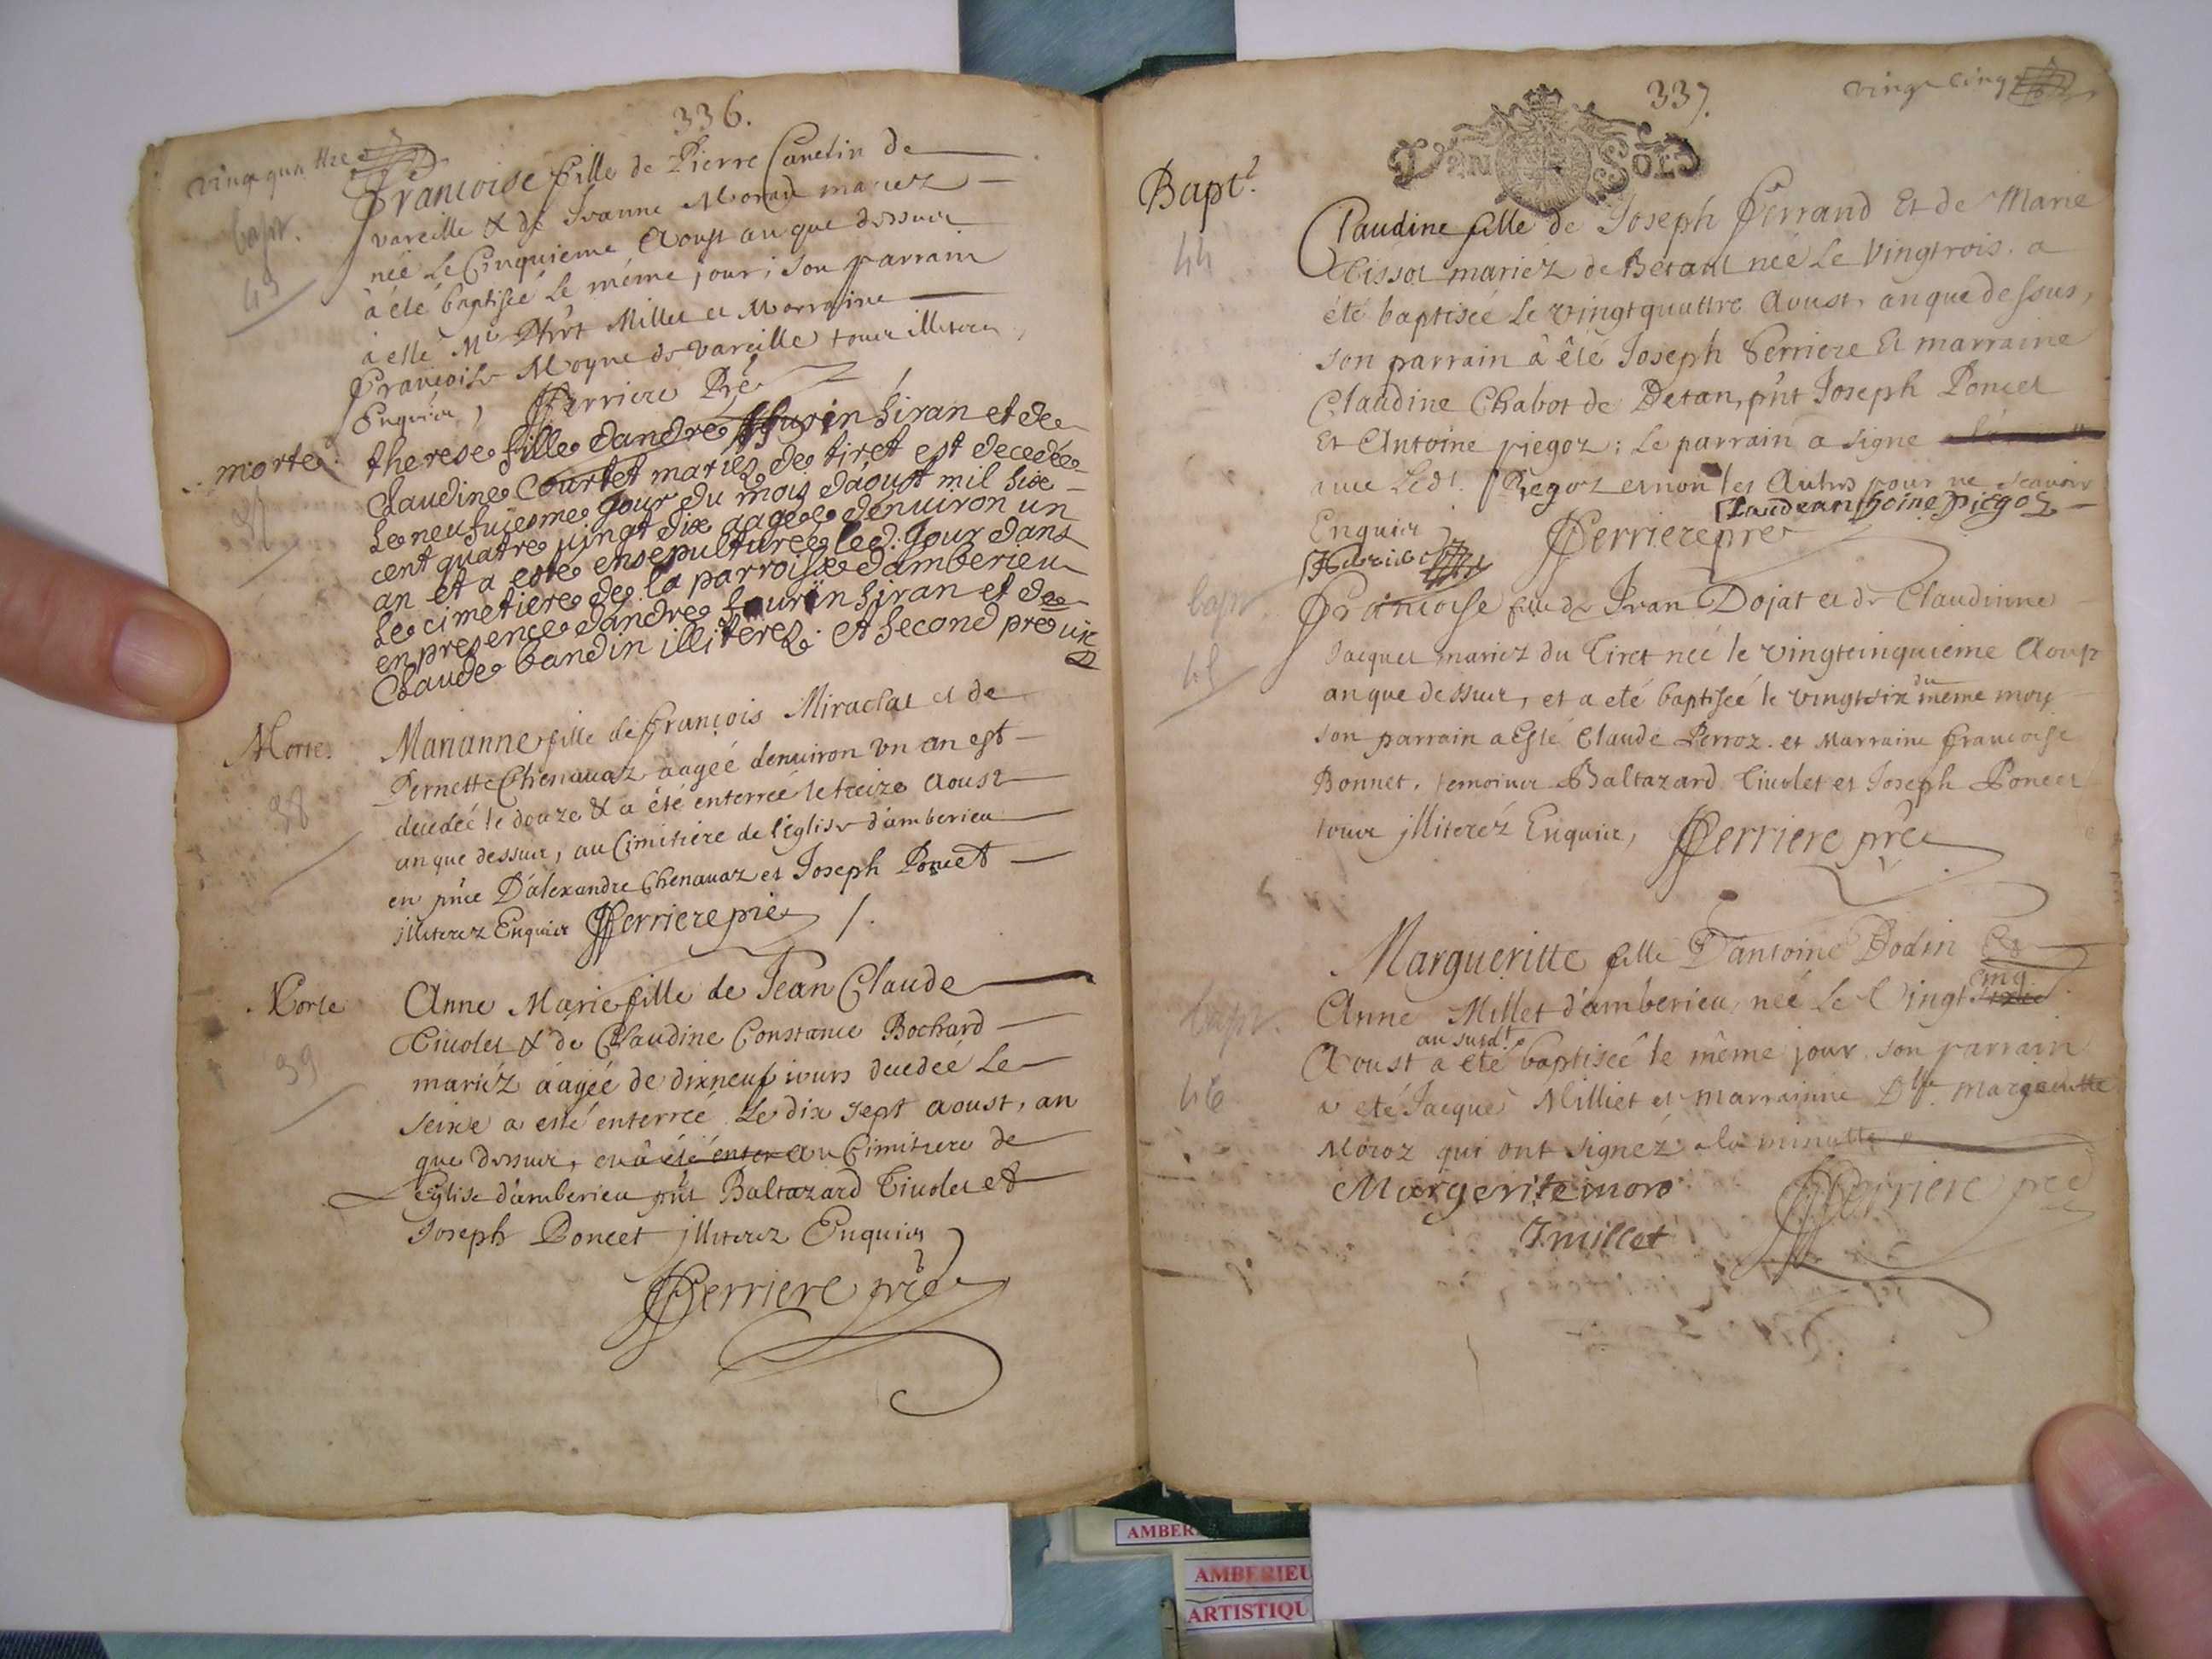 336.
vingt quattre
bapt.
43
Francoise fille de Pierre Canetin de
vareille & de Jeanne Morad mariez
née Le Cinquieme Aoust an que dessus
à été baptisée le même jour; son parrain
à esté Mr Millet et Marraine
Francoise Moyne de vareille tous illiterez
Enquis, Perriere Pre
morte
37
therese fille dandre Laurin siran et de
Claudine Courtet mariés de tiret est decedée
Le neufuiesme jour du mois d'aoust mil six
cent quatre vingt dix aagée denuiron un
an et a este ensepulturée led. Jour dans
Le cimetiere de la parroisse damberieu
en presence dandre Laurin siran et de
Claude bandin illiterez. et second pre vic
Morte
38
Marianne fille de François Miraclat et de
Pernette Chenauaz aagéé denuiron vn an est
decedéé le douze & a été enterréé le treize Aoust
an que dessus, au Cimitiere de l'église d'amberieu
en pnce D'alexandre Chenauaz et Joseph Poncet
illiterez Enquis Perriere pre
Morte
39
Anne Marie fille de Jean Claude
Tiuolet & de Claudine Constance Bochard
mariéz aagéé de dixneuf jours decedéé Le
seize a esté enterréé Le dix sept aoust, an
que dessus, et à été enter au Cimitiere de
église d'amberieu pnt Baltazard Tiuolet et
Joseph Poncet illiterez Enquis
Perriere pre
337.
vingt cinq
DEUX SOLS
Bapt.
44
Claudine fille de Joseph Ferrand Et de Marie
Tissot mariéz de Betant née Le Vingtrois. a
été baptisée Le vingtquattre Aoust an que dessus,
son parrain à été Joseph Ferriere Et marraine
Claudine Chabot de Betan, pnt Joseph Poncet
Et Antoine piegoz; Le parrain a signe
auec Led. Piegoz et non les Autres pour ne scauoir
Enquis Claude anthoine piegoz
Perriere pre
bapt.
45
Francoise fille de Jean Dojat et de Claudinne
Jacquet mariez du Tiret née le vingtcinquième Aoust
an que dessus, et a eté baptiséé le vingtsix du meme mois
son parrain a Esté Claude Perroz. et Marraine francoise
Bonnet, temoins Baltazard Tiuolet et Joseph Poncet
tous illiteréz Enquis, Perriere pre
bapt.
46
Margueritte fille D'antoine Bodin Et
Anne Millet d'amberieu née Le Vingt sixie cinq
Aoust au susdt a eté baptiséé le même jour. son parrain
a eté Jacque Milliet et marrainne Dlle. Margueritte
Moroz qui ont signéz a la minutte
Margerite moro
J millet
Perriere pre
AMBERIEU
ARTISTIQU